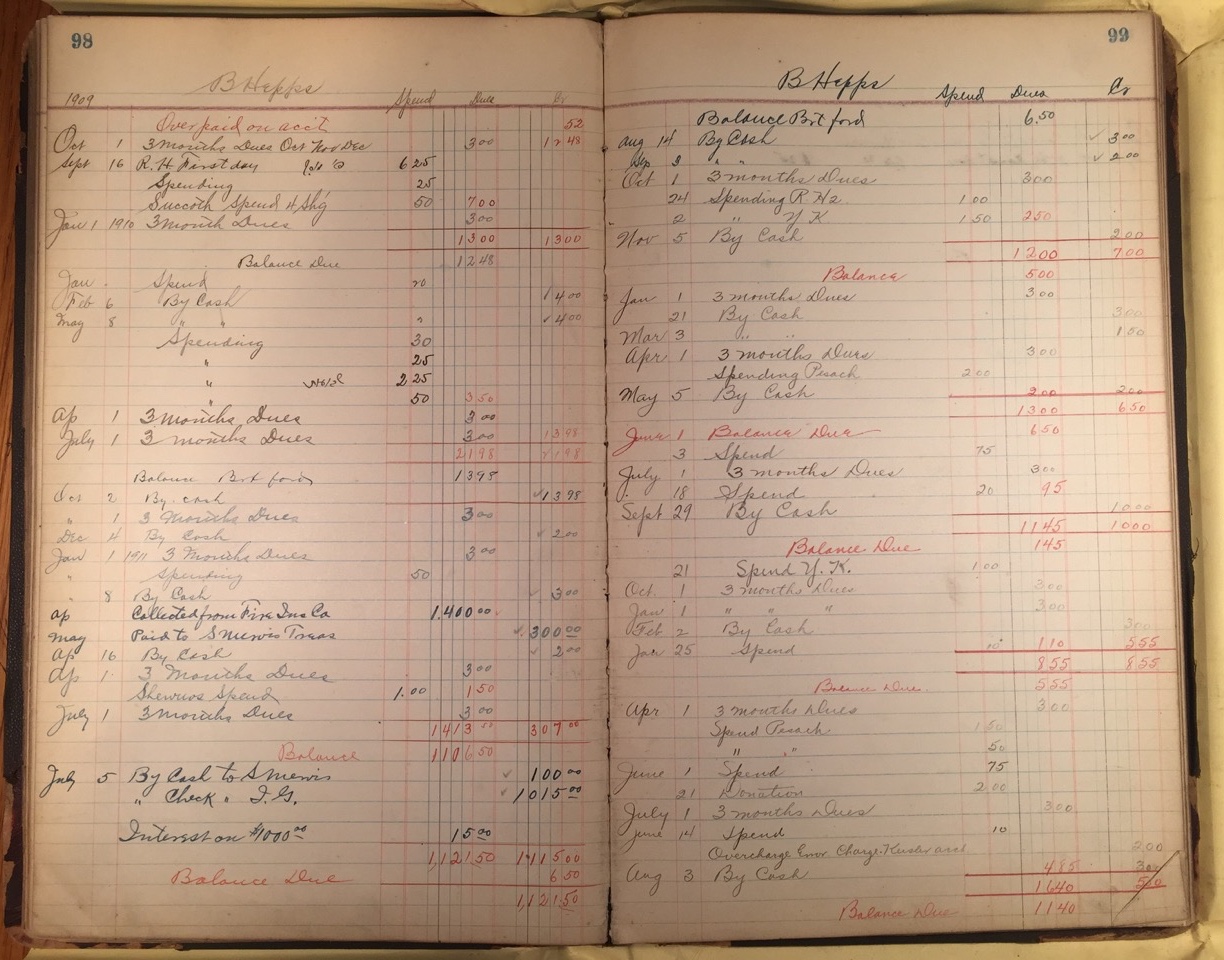 98
B Hepps
1909 Spend Dues Cr
Over paid on acct 52
Oct 1 3 months Dues Oct Nov Dec 3 00 12 48
Sept 16 R. H. First day 6 25
Spending 25
Succoth Spend 4 Shg 50 7 00
Jan 1 1910 3 Month Dues 3 00
13 00 13 00
Balance Due 12 48
Jan Spend 20
Feb 6 By Cash 4 00
May 8 " " " 4 00
Spending 30
" 25
" 2 25
" 50 3 50
Ap 1 3 Months Dues 3 00
July 1 3 months Dues 3 00 13 98
21 98 21 98
Balance Brt ford 13 98
Oct 2 By cash 13 98
" 1 3 Months Dues 3 00
Dec 4 By Cash 2 00
Jan 1 1911 3 Months Dues 3 00
" Spending 50
" 8 By Cash 3 00
ap Collected from Fire Ins Co 1.400 00
may Paid to S Mervis Treas 300 00
Ap 16 By Cash 2 00
Ap 1 3 Months Dues 3 00
Shewuos Spend 1.00 1 50
July 1 3 Months Dues 3 00
1413 50 307 00
Balance 1106 50
July 5 By Cash to S Mervis 100 00
" Check " I. G. 1015 00
Interest on $1000 00 15 00
1,121 50 1115 00
Balance Due 6 50
1,121 50
99
B Hepps
Spend Dues Cr
Balance Brt ford 6.50
aug 14 By Cash 3 00
Sep 2 " " 2 00
Oct 1 3 months Dues 3 00
24 Spending R. H 2. 1 00
" 2 " Y K 1 50 2 50
Nov 5 By Cash 2 00
12 00 7 00
Balance 5 00
Jan 1 3 months Dues 3 00
21 By Cash 3 00
Mar 3 " " 1 50
Apr 1 3 months Dues 3 00
Spending Pesach 2 00
May 5 By Cash 2 00 2 00
13 00 6 50
June 1 Balance Due 6 50
3 Spend 75
July 1 3 months Dues 3 00
18 Spend 20 95
Sept 29 By Cash 10 00
11 45 10 00
Balance Due 1 45
21 Spend Y. K. 1 00
Oct. 1 3 months Dues 3 00
Jan 1 " " " 3 00
Feb 2 By Cash 3 00
Jan 25 Spend 10 1 10 5 55
8 55 8 55
Balance Due 5 55
Apr 1 3 months Dues 3 00
Spend Pesach 1 50
" " 50
June 1 Spend 75
21 Donation 2 00
July 1 3 months Dues 3 00
June 14 Spend 10
Overcharge Error Charge 2 00
Aug 3 By Cash 4 85 3 00
16 40 5 00
Balance Due 11 40